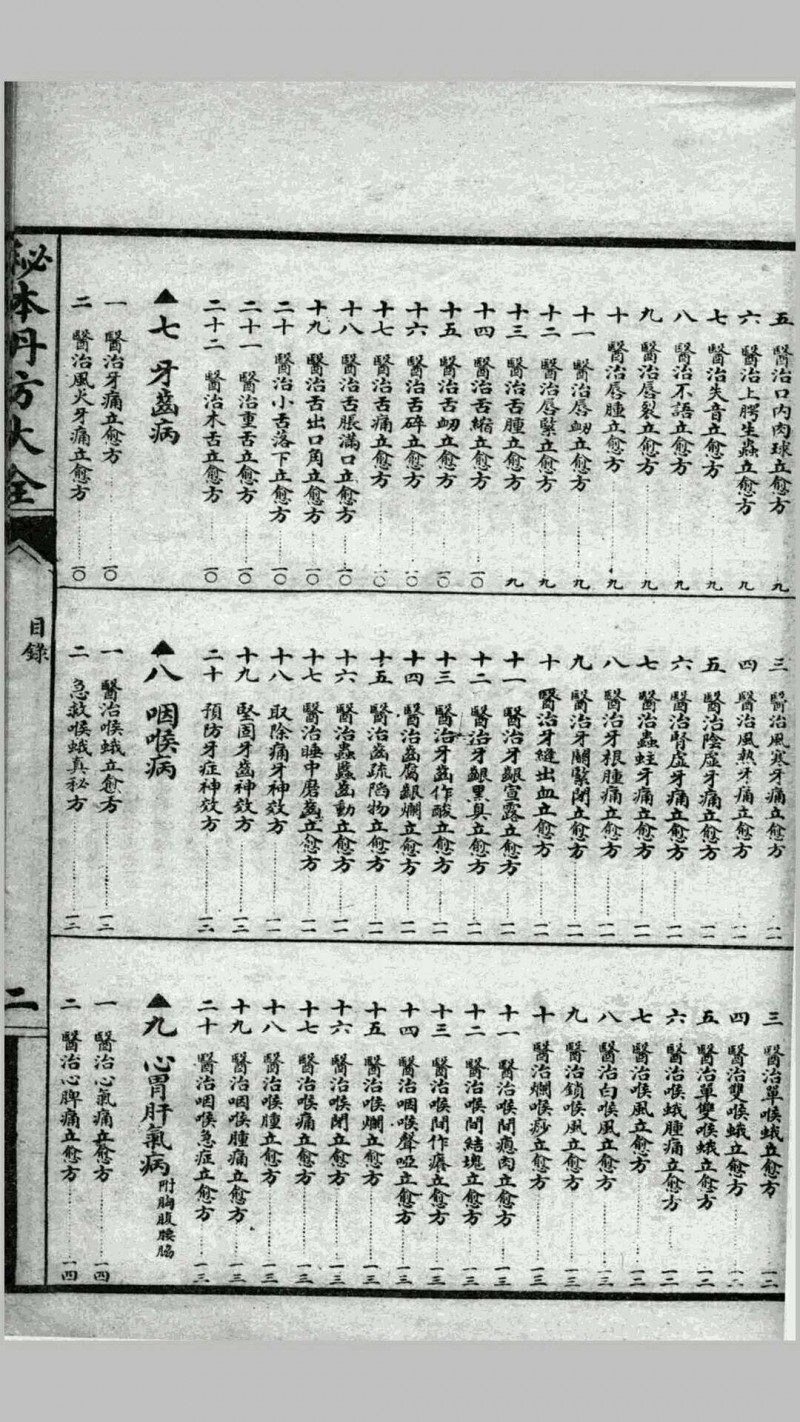 五 醫治口內肉球立愈方 九
六 醫治上腭生蟲立愈方 九
七 醫治失音立愈方 九
八 醫治不語立愈方 九
九 醫治唇裂立愈方 九
十 醫治唇腫立愈方 九
十一 醫治唇衂立愈方 九
十二 醫治唇緊立愈方 九
十三 醫治舌腫立愈方 九
十四 醫治舌縮立愈方 一〇
十五 醫治舌衂立愈方 一〇
十六 醫治舌碎立愈方 一〇
十七 醫治舌痛立愈方 一〇
十八 醫治舌脹滿口立愈方 一〇
十九 醫治舌出口角立愈方 一〇
二十 醫治小舌落下立愈方 一〇
二十一 醫治重舌立愈方 一〇
二十二 醫治木舌立愈方 一〇
▲七 牙齒病
一 醫治牙痛立愈方 一〇
二 醫治風火牙痛立愈方 一〇
三 醫治風寒牙痛立愈方 一一
四 醫治風熱牙痛立愈方 一一
五 醫治陰虛牙痛立愈方 一一
六 醫治腎虛牙痛立愈方 一一
七 醫治蟲蛀牙痛立愈方 一一
八 醫治牙根腫痛立愈方 一一
九 醫治牙關緊閉立愈方 一一
十 醫治牙縫出血立愈方 一一
十一 醫治牙齦宣露立愈方 一一
十二 醫治牙齦黑臭立愈方 一一
十三 醫治牙齒作酸立愈方 一一
十四 醫治齒腐齦爛立愈方 一一
十五 醫治齒疏陷物立愈方 一一
十六 醫治蟲蠶齒動立愈方 一一
十七 醫治睡中磨齒立愈方 一一
十八 取除痛牙神效方 一一
十九 堅固牙齒神效方 一二
二十 預防牙症神效方 一二
▲八 咽喉病
一 醫治喉蛾立愈方 一二
二 急救喉蛾真秘方 一二
三 醫治單喉蛾立愈方 一二
四 醫治雙喉蛾立愈方 一二
五 醫治單雙喉蛾立愈方 一二
六 醫治喉蛾腫痛立愈方 一二
七 醫治喉風立愈方 一二
八 醫治白喉風立愈方 一三
九 醫治鎖喉風立愈方 一三
十 醫治爛喉痧立愈方 一三
十一 醫治喉間瘜肉立愈方 一三
十二 醫治喉間結塊立愈方 一三
十三 醫治喉間作癢立愈方 一三
十四 醫治咽喉聲啞立愈方 一三
十五 醫治喉爛立愈方 一三
十六 醫治喉閉立愈方 一三
十七 醫治喉痛立愈方 一三
十八 醫治喉腫立愈方 一三
十九 醫治咽喉腫痛立愈方 一三
二十 醫治咽喉急症立愈方 一三
▲九 心胃肝氣病 附胸腹腰脇
一 醫治心氣痛立愈方 一四
二 醫治心脾痛立愈方 一四
秘本丹方大全
目錄
二